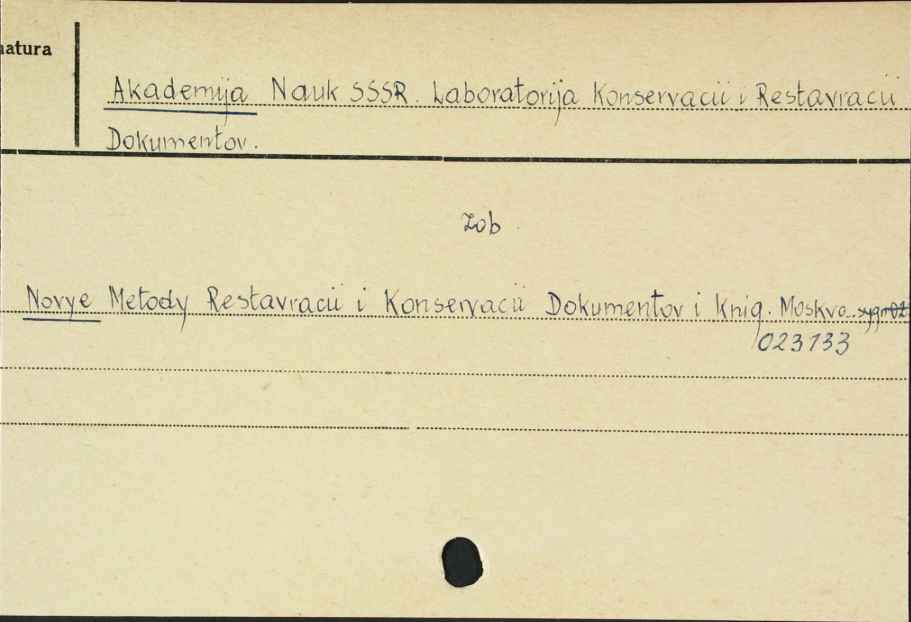 natura
Akademija Nauk SSSR. Laboratorija Konservacii i Restavracii
Dokumentov.
Zob
Novye Metody Restavracii i Konservacii Dokumentov i Knig. Moskva.
023133